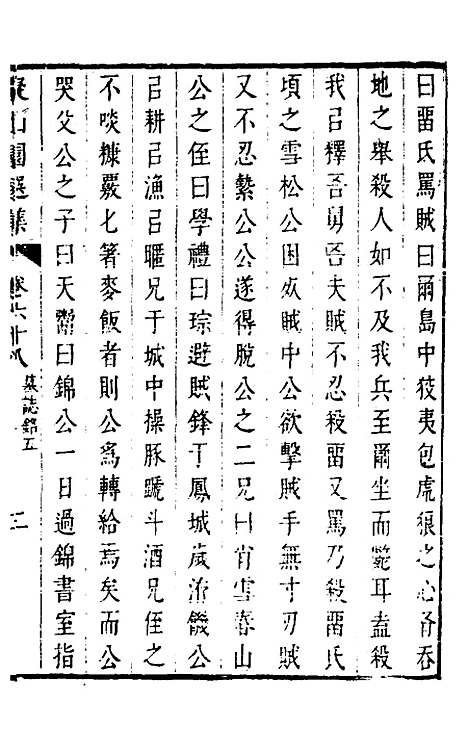 曰畱氏罵賊曰爾島中狡夷包虎狼之心啇吞
地之舉殺人如不及我兵至爾坐而斃耳盍殺
我㠯釋吾舅吾夫賊不忍殺畱又罵乃殺畱氏
頃之雪松公困於賊中公欲擊賊手無寸刃賊
又不忍縶公公遂得脫公之二兄曰肖雪春山
公之侄曰學禮曰琮避賊鋒于鳳城歲洊饑公
㠯耕㠯漁㠯䁥兄于城中操豚蹏斗酒兄侄之
不啖糠覈匕箸麥飯者則公爲轉給焉矣而公
哭父公之子曰天𩆜曰錦公一日過錦書室指
擬山園選集 卷六十八 墓誌銘五 三